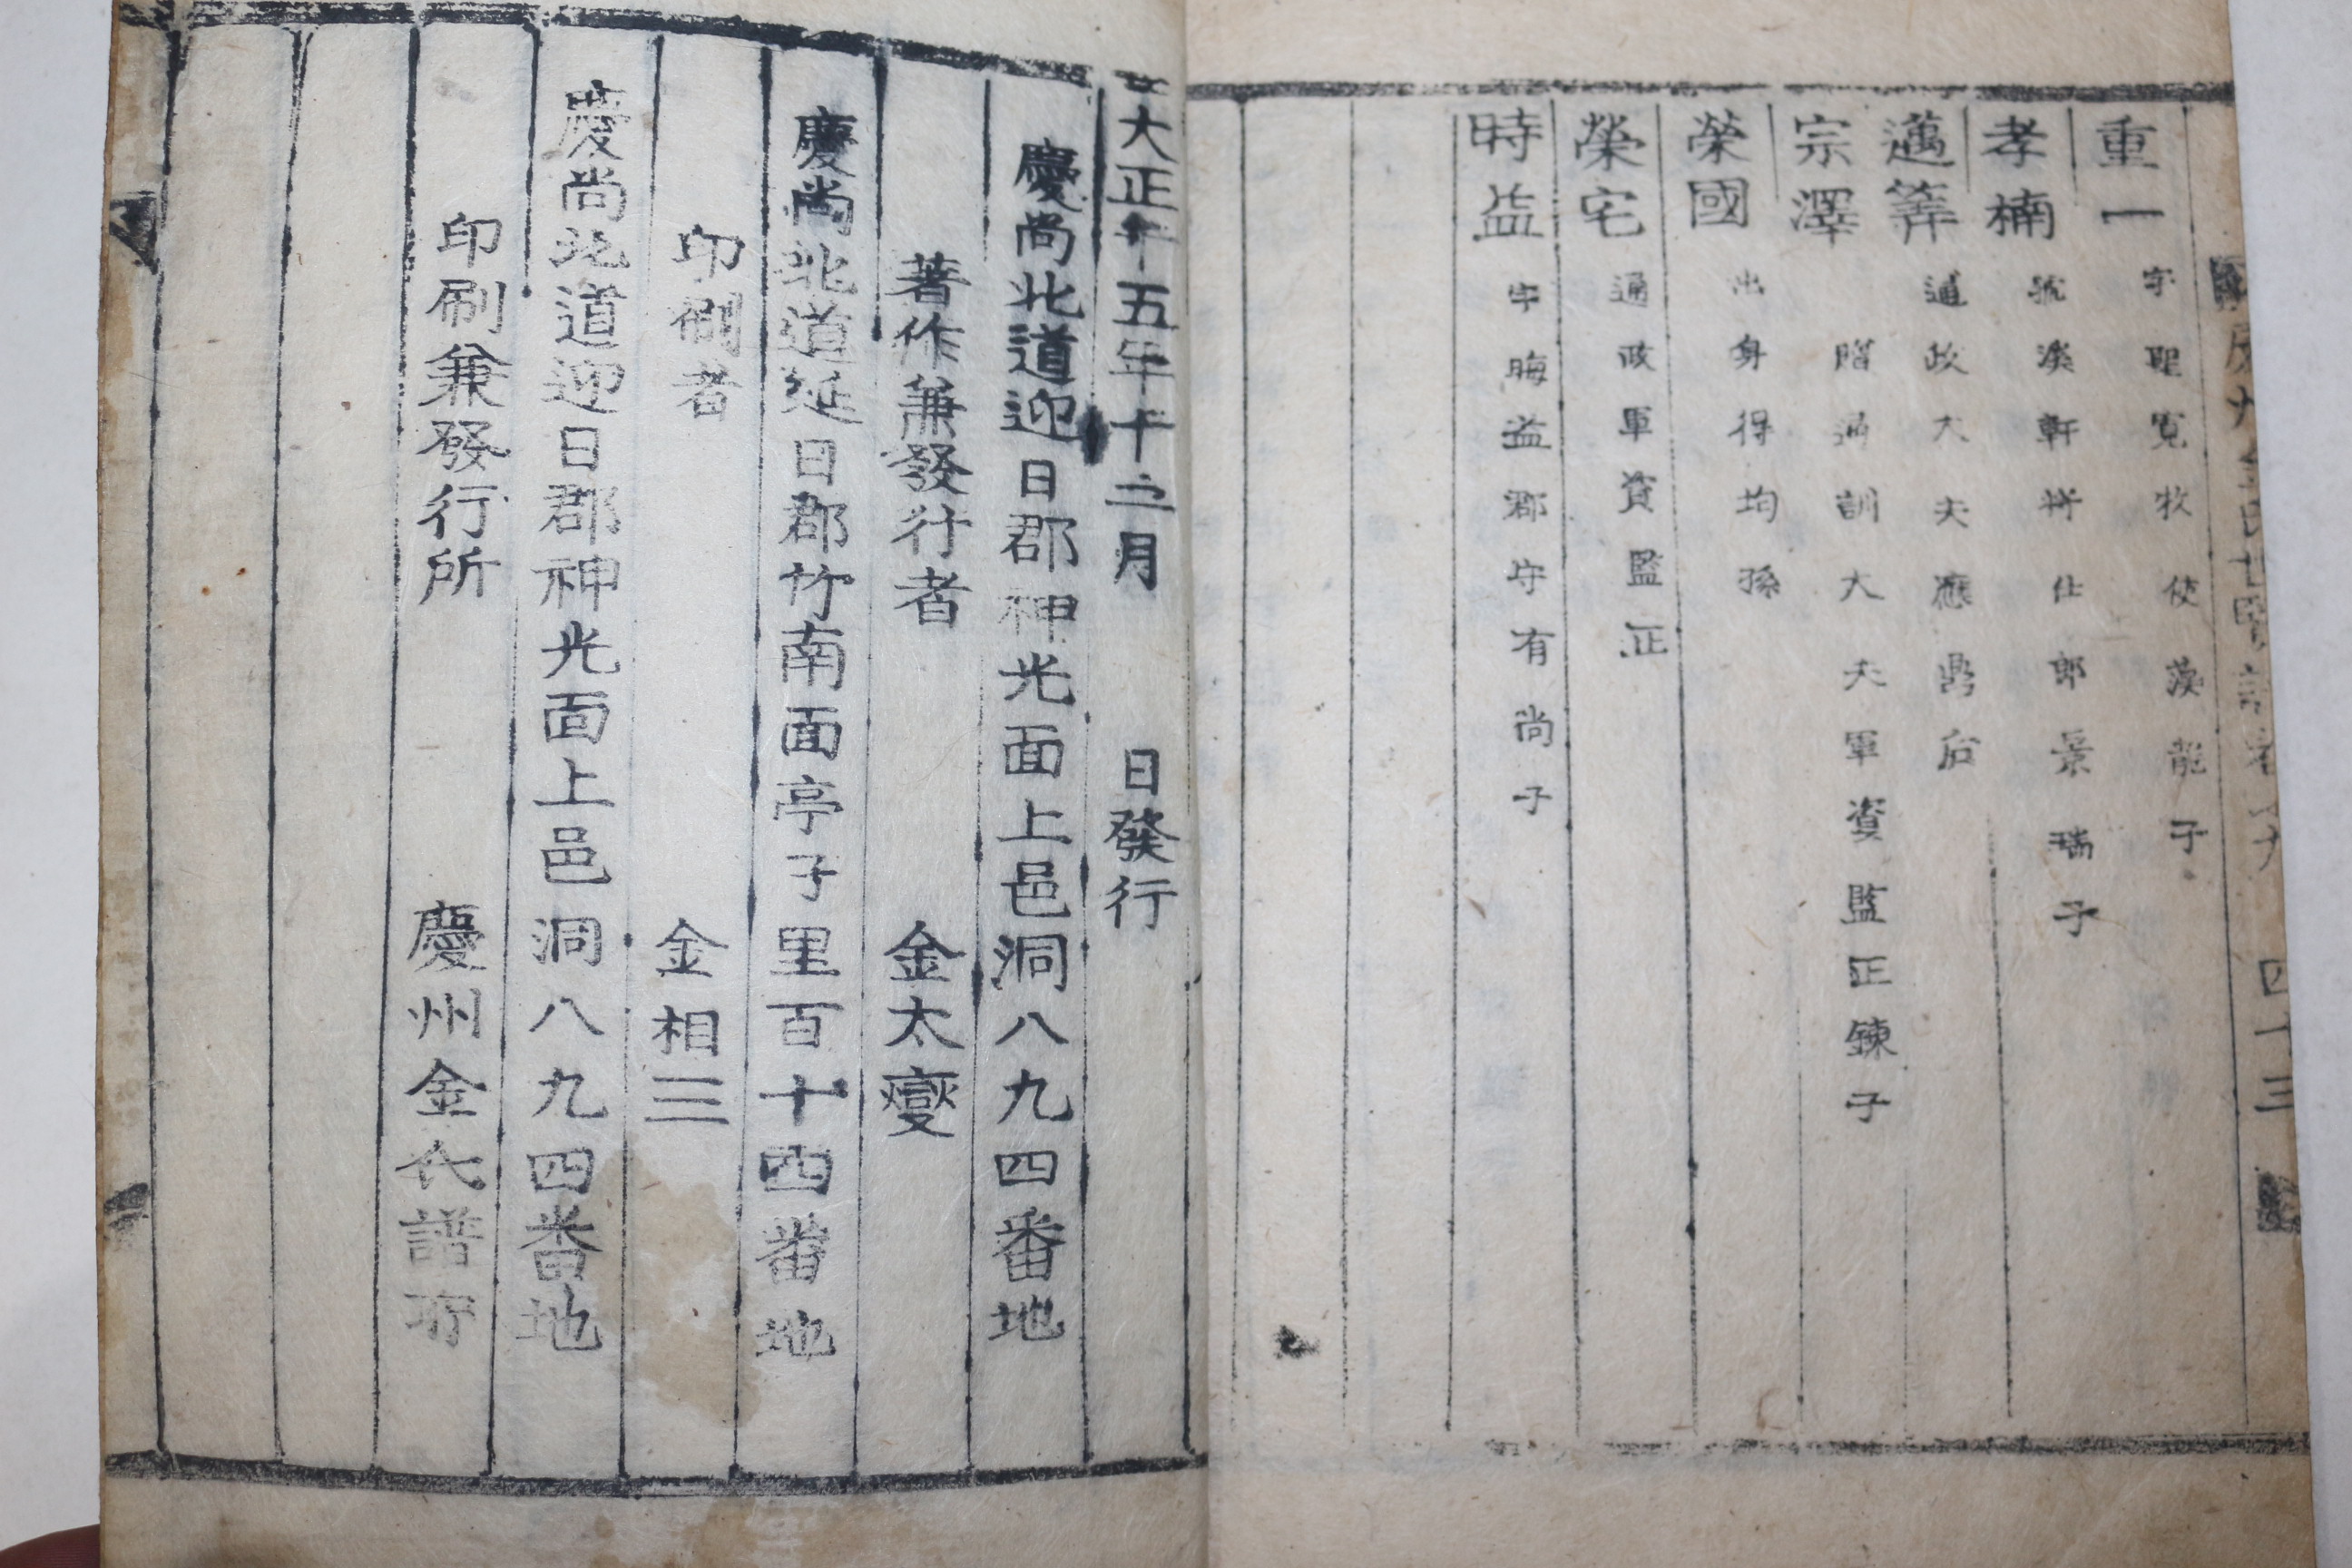 重一 字聖寬牧使漢龍子
孝楠 號漢軒將仕郎景瑞子
邁筭 通政大夫應鼎后
宗澤 贈通訓大夫軍資監正鍊子
榮國 出身得均孫
榮宅 通政軍資監正
時益 字晦益郡守有尚子
四十三
大正年五年十二月 日發行
慶尚北道迎日郡神光面上邑洞八九四番地
著作兼發行者 金太燮
慶尚北道延日郡竹南面亭子里百十四番地
印刷者 金相三
慶尚北道迎日郡神光面上邑洞八九四番地
印刷兼發行所 慶州金氏譜所